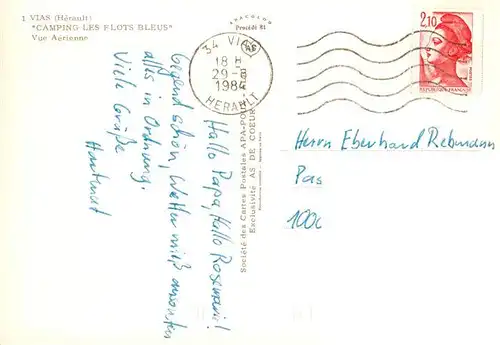 1 VIAS (Hérault)
"CAMPING LES FLOTS BLEUS"
Vue Aérienne
APACOLOR
Procédé 81
34 VIAS
18 H
29-
1984
HERAULT
2,10
REPUBLIQUE FRANÇAISE
Société des Cartes Postales APA-POUX
Exclusivité AS DE COEUR
Hallo Papa, Hallo Rosemarie!
Gegend schön, Wetter mieß ansonsten
alles in Ordnung.
Viele Grüße
Hartmut
Herrn Eberhard Rebmann
Pas
100